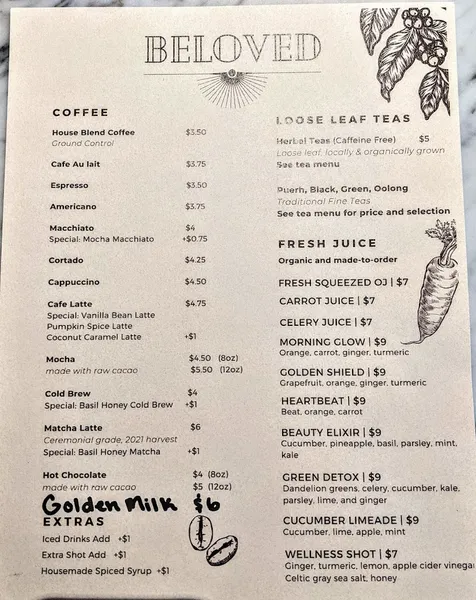 BELOVED
COFFEE
House Blend Coffee $3.50
Ground Control
Cafe Au lait $3.75
Espresso $3.50
Americano $3.75
Macchiato $4
Special: Mocha Macchiato +$0.75
Cortado $4.25
Cappuccino $4.50
Cafe Latte $4.75
Special: Vanilla Bean Latte
Pumpkin Spice Latte
Coconut Caramel Latte +$1
Mocha $4.50 (8oz)
made with raw cacao $5.50 (12oz)
Cold Brew $4
Special: Basil Honey Cold Brew +$1
Matcha Latte $6
Ceremonial grade, 2021 harvest
Special: Basil Honey Matcha +$1
Hot Chocolate $4 (8oz)
made with raw cacao $5 (12oz)
Golden Milk $6
EXTRAS
Iced Drinks Add +$1
Extra Shot Add +$1
Housemade Spiced Syrup +$1
LOOSE LEAF TEAS
Herbal Teas (Caffeine Free) $5
Loose leaf, locally & organically grown
See tea menu
Puerh, Black, Green, Oolong
Traditional Fine Teas
See tea menu for price and selection
FRESH JUICE
Organic and made-to-order
FRESH SQUEEZED OJ | $7
CARROT JUICE | $7
CELERY JUICE | $7
MORNING GLOW | $9
Orange, carrot, ginger, turmeric
GOLDEN SHIELD | $9
Grapefruit, orange, ginger, turmeric
HEARTBEAT | $9
Beat, orange, carrot
BEAUTY ELIXIR | $9
Cucumber, pineapple, basil, parsley, mint,
kale
GREEN DETOX | $9
Dandelion greens, celery, cucumber, kale,
parsley, lime, and ginger
CUCUMBER LIMEADE | $9
Cucumber, lime, apple, mint
WELLNESS SHOT | $7
Ginger, turmeric, lemon, apple cider vinegar
Celtic gray sea salt, honey